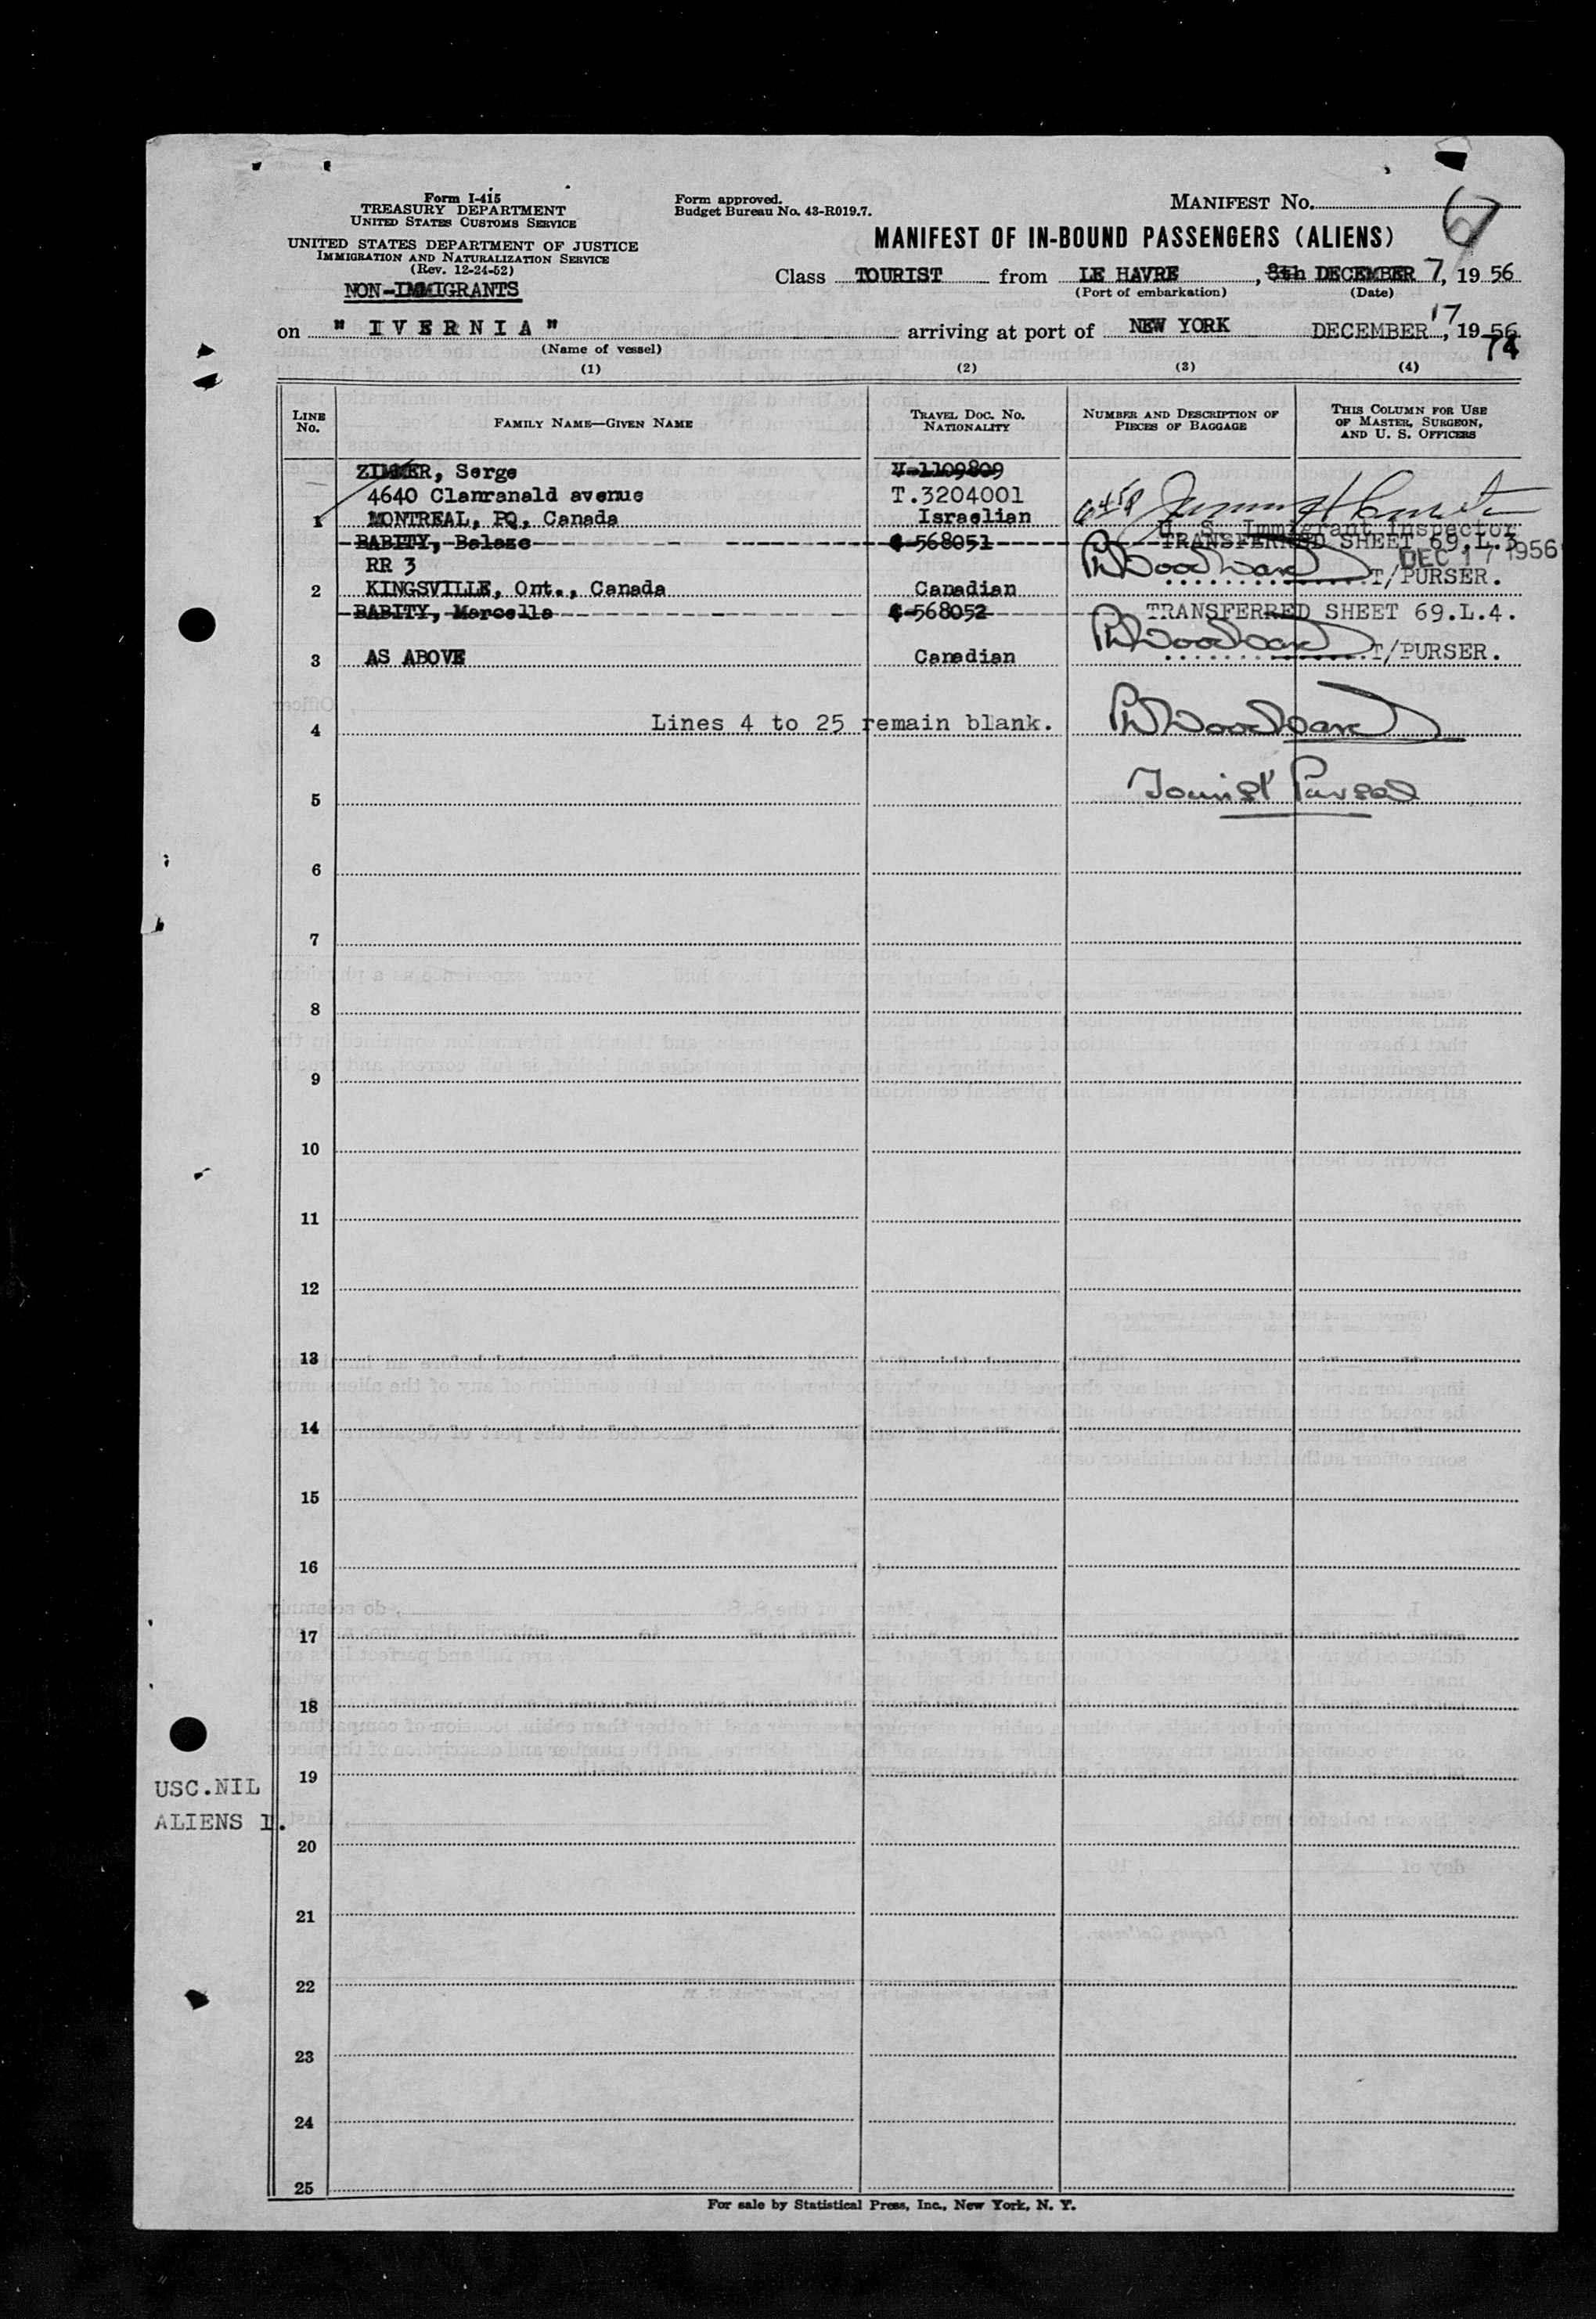 Form I-415
TREASURY DEPARTMENT
UNITED STATES CUSTOMS SERVICE
UNITED STATES DEPARTMENT OF JUSTICE
IMMIGRATION AND NATURALIZATION SERVICE
(Rev. 12-24-52)
NON-IMMIGRANTS
Form approved.
Budget Bureau No. 43-R019.7.
MANIFEST No.
67
MANIFEST OF IN-BOUND PASSENGERS (ALIENS)
Class TOURIST from LE HAVRE, 8th DECEMBER 7, 1956
(Port of embarkation) (Date)
on " IVERNIA " arriving at port of NEW YORK DECEMBER 17, 1956
(Name of vessel)
74
(1) (2) (3) (4)
LINE No. FAMILY NAME—GIVEN NAME TRAVEL DOC. No. NATIONALITY NUMBER AND DESCRIPTION OF PIECES OF BAGGAGE THIS COLUMN FOR USE OF MASTER, SURGEON, AND U. S. OFFICERS
ZIMMER, Serge -1109809
4640 Clanranald avenue T.3204001
1 MONTREAL, PQ, Canada Israelian
U. S. Immigrant Inspector
BABITY, Balazs 568051 TRANSFERRED SHEET 69.L.3
DEC 17 1956
RR 3 PWWoodward T/PURSER.
2 KINGSVILLE, Ont., Canada Canadian
BABITY, Marcella 568052 TRANSFERRED SHEET 69.L.4.
3 AS ABOVE Canadian PWWoodward T/PURSER.
4 Lines 4 to 25 remain blank. PWWoodward
5 Tourist Purser
6
7
8
9
10
11
12
13
14
15
16
17
18
19
USC.NIL
ALIENS 1.
20
21
22
23
24
25
For sale by Statistical Press, Inc., New York, N. Y.